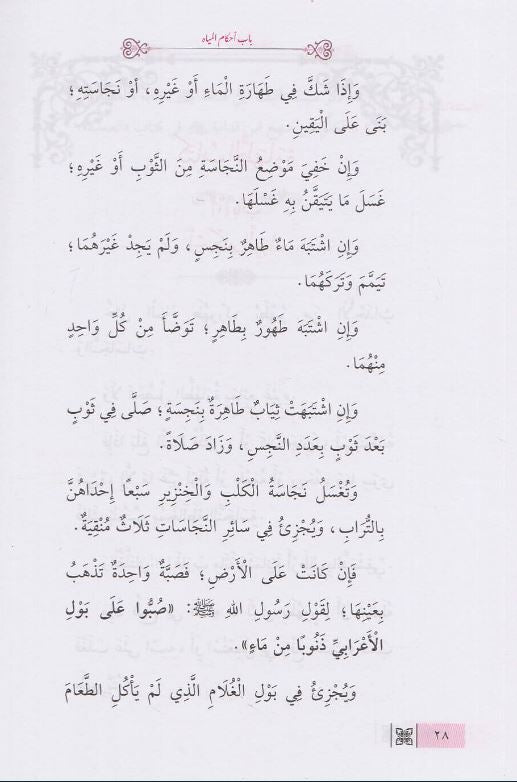 باب أحكام المياه
وَإِذَا شَكَّ فِي طَهَارَةِ الْمَاءِ أَوْ غَيْرِهِ، أوْ نَجَاسَتِهِ؛
بَنَى عَلَى الْيَقِينِ.
وَإِنْ خَفِيَ مَوْضِعُ النَّجَاسَةِ مِنَ الثَّوْبِ أَوْ غَيْرِهِ؛
غَسَلَ مَا يَتَيَقَّنُ بِهِ غَسْلَهَا.
وَإِنِ اشْتَبَهَ مَاءٌ طَاهِرٌ بِنَجِسٍ، وَلَمْ يَجِدْ غَيْرَهُمَا؛
تَيَمَّمَ وَتَرَكَهُمَا.
وَإِنِ اشْتَبَهَ طَهُورٌ بِطَاهِرٍ؛ تَوَضَّأَ مِنْ كُلِّ وَاحِدٍ
مِنْهُمَا.
وَإِنِ اشْتَبَهَتْ ثِيَابٌ طَاهِرَةٌ بِنَجِسَةٍ؛ صَلَّى فِي ثَوْبٍ
بَعْدَ ثَوْبٍ بِعَدَدِ النَّجِسِ، وَزَادَ صَلَاةً.
وَتُغْسَلُ نَجَاسَةُ الْكَلْبِ وَالْخِنْزِيرِ سَبْعًا إِحْدَاهُنَّ
بِالتُّرَابِ، وَيُجْزِئُ فِي سَائِرِ النَّجَاسَاتِ ثَلَاثٌ مُنْقِيَةٌ.
فَإِنْ كَانَتْ عَلَى الْأَرْضِ؛ فَصَبَّةٌ وَاحِدَةٌ تَذْهَبُ
بِعَيْنِهَا؛ لِقَوْلِ رَسُولِ اللهِ ﷺ: «صُبُّوا عَلَى بَوْلِ
الْأَعْرَابِيِّ ذَنُوبًا مِنْ مَاءٍ».
وَيُجْزِئُ فِي بَوْلِ الْغُلَامِ الَّذِي لَمْ يَأْكُلِ الطَّعَامَ
٢٨